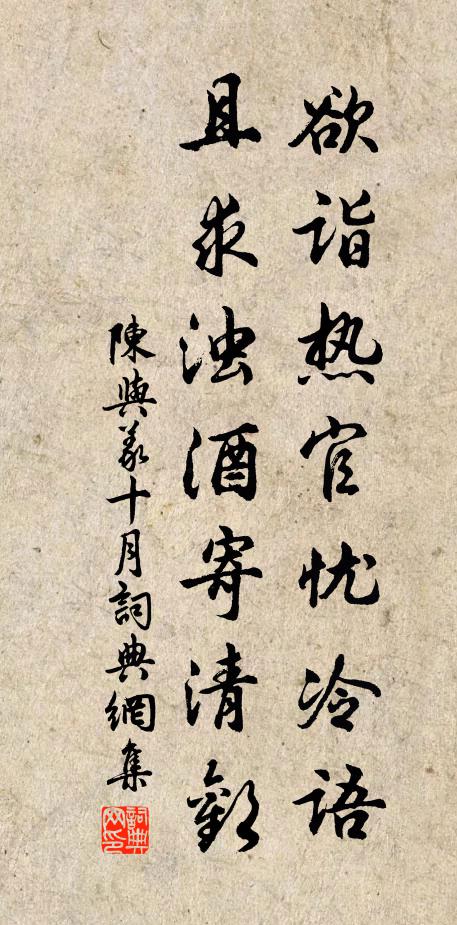 欲诣热官忧冷语
且求浊酒寄清歡
陳與義十月詞典網集
詞典网印